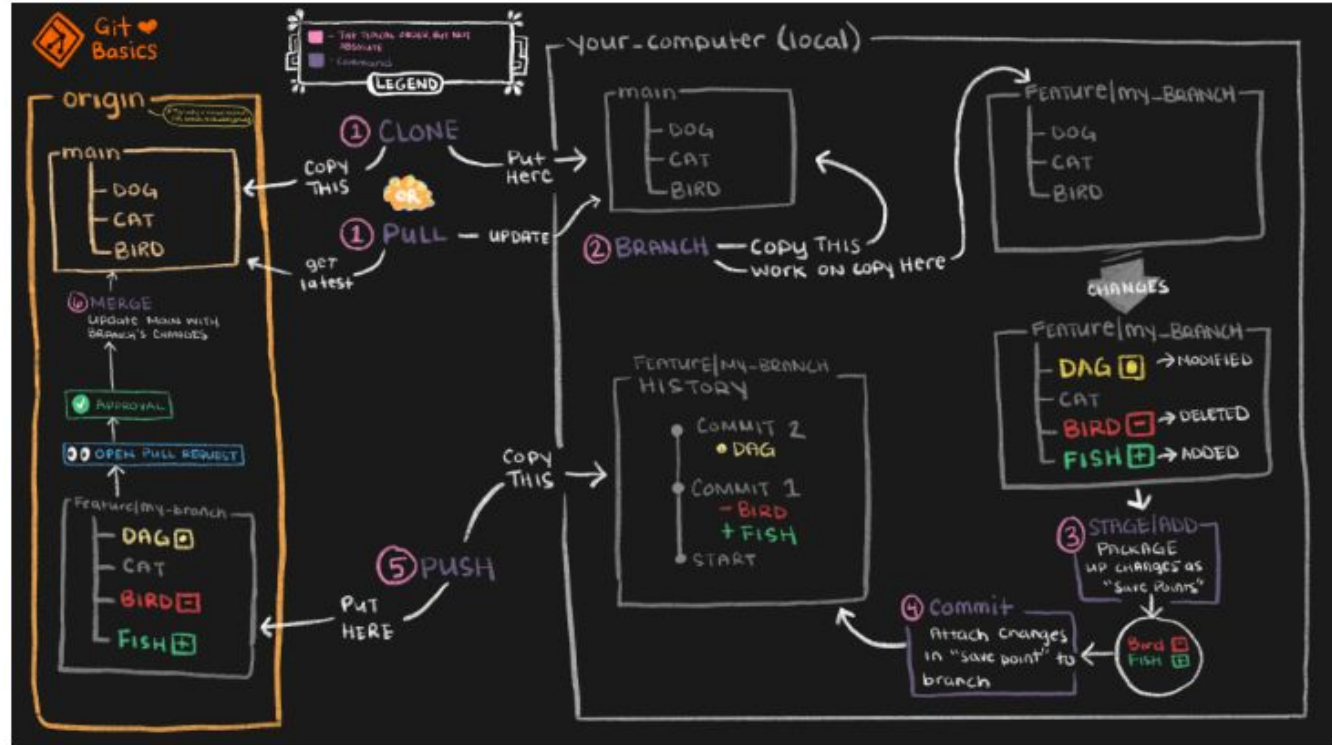 Git ❤
Basics
- THE TYPICAL ORDER, BUT NOT
ABSOLUTE
- COMMAND
LEGEND
origin
main
- DOG
- CAT
- BIRD
6 MERGE
UPDATE MAIN WITH
BRANCH'S CHANGES
APPROVAL
OPEN PULL REQUEST
Feature/my-branch
- DAG
- CAT
- BIRD -
- FISH +
1 CLONE
COPY
THIS
PUT
HERE
OR
1 PULL
UPDATE
get
latest
5 PUSH
COPY
THIS
PUT
HERE
your_computer (local)
main
- DOG
- CAT
- BIRD
2 BRANCH
COPY THIS
WORK ON COPY Here
FEATURE/MY_BRANCH
- DOG
- CAT
- BIRD
CHANGES
FEATURE/MY_BRANCH
- DAG → MODIFIED
- CAT
- BIRD - → DELETED
- FISH + → ADDED
3 STAGE/ADD
PACKAGE
UP CHANGES AS
"Save Points"
Bird -
FISH +
4 Commit
Attach Changes
in "save point" to
branch
FEATURE/MY-BRANCH
HISTORY
COMMIT 2
• DAG
COMMIT 1
- BIRD
+ FISH
START